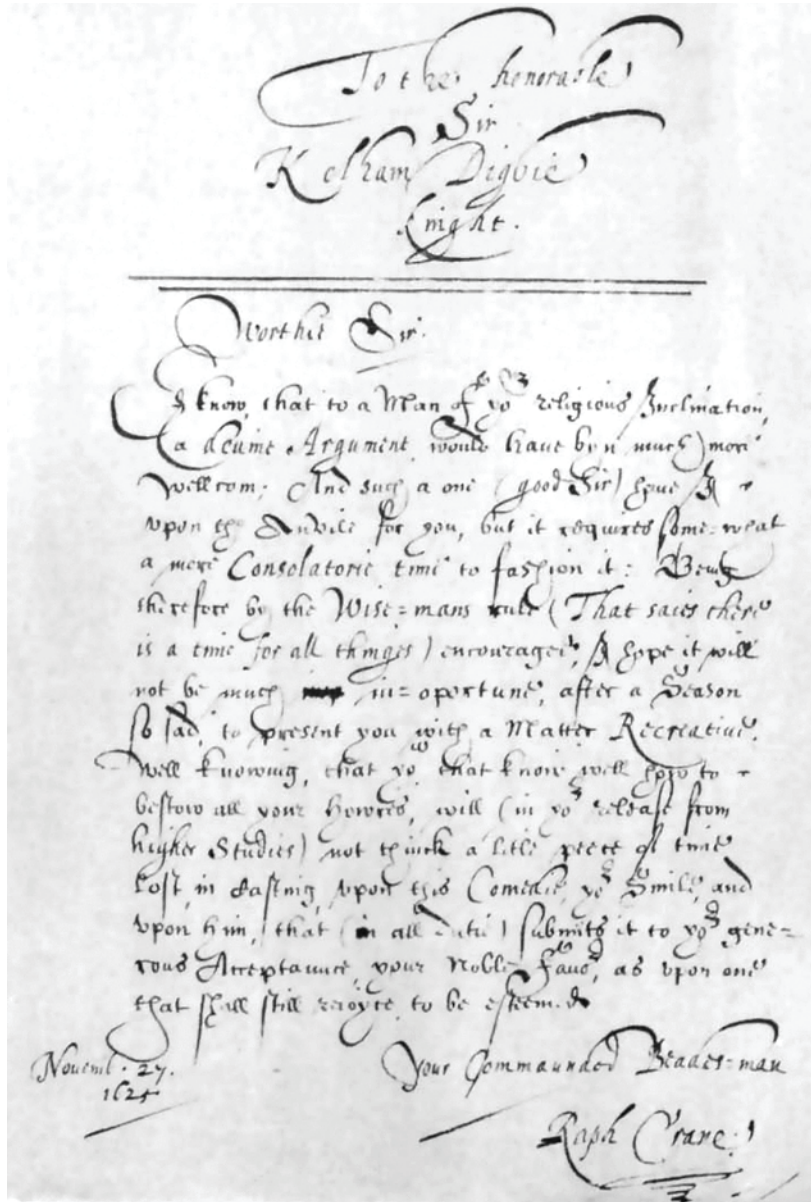 To the honorable
Sir
Kelham Digbie
Knight.
Worthie Sir.
I know, that to a Man of yor religious Inclination,
a devine Argument would have byn much more
wellcom; And such a one (good Sir) have I
upon the Anvile for you, but it requires some-what
a more Consolatorie time to fashion it: Being
therefore by the Wise-mans rule (That saies there
is a time for all thinges) encouraged, I hope it will
not be much in-oportune, after a Season
so sad, to present you with a Matter Recreative.
Well knowing, that yow that know well how to
bestow all your howres, will (in yor release from
higher Studies) not thinck a litle peece of time
lost, in casting, vpon this Comedie, yor Smile, and
vpon him, that (in all dutie) submits it to yor gene=
rous Acceptance, your Noble Favor, as vpon one
that shall still reioyce to be esteemed
Your Commaunded Beades-man
Raph Crane.
Novemb. 27.
1625